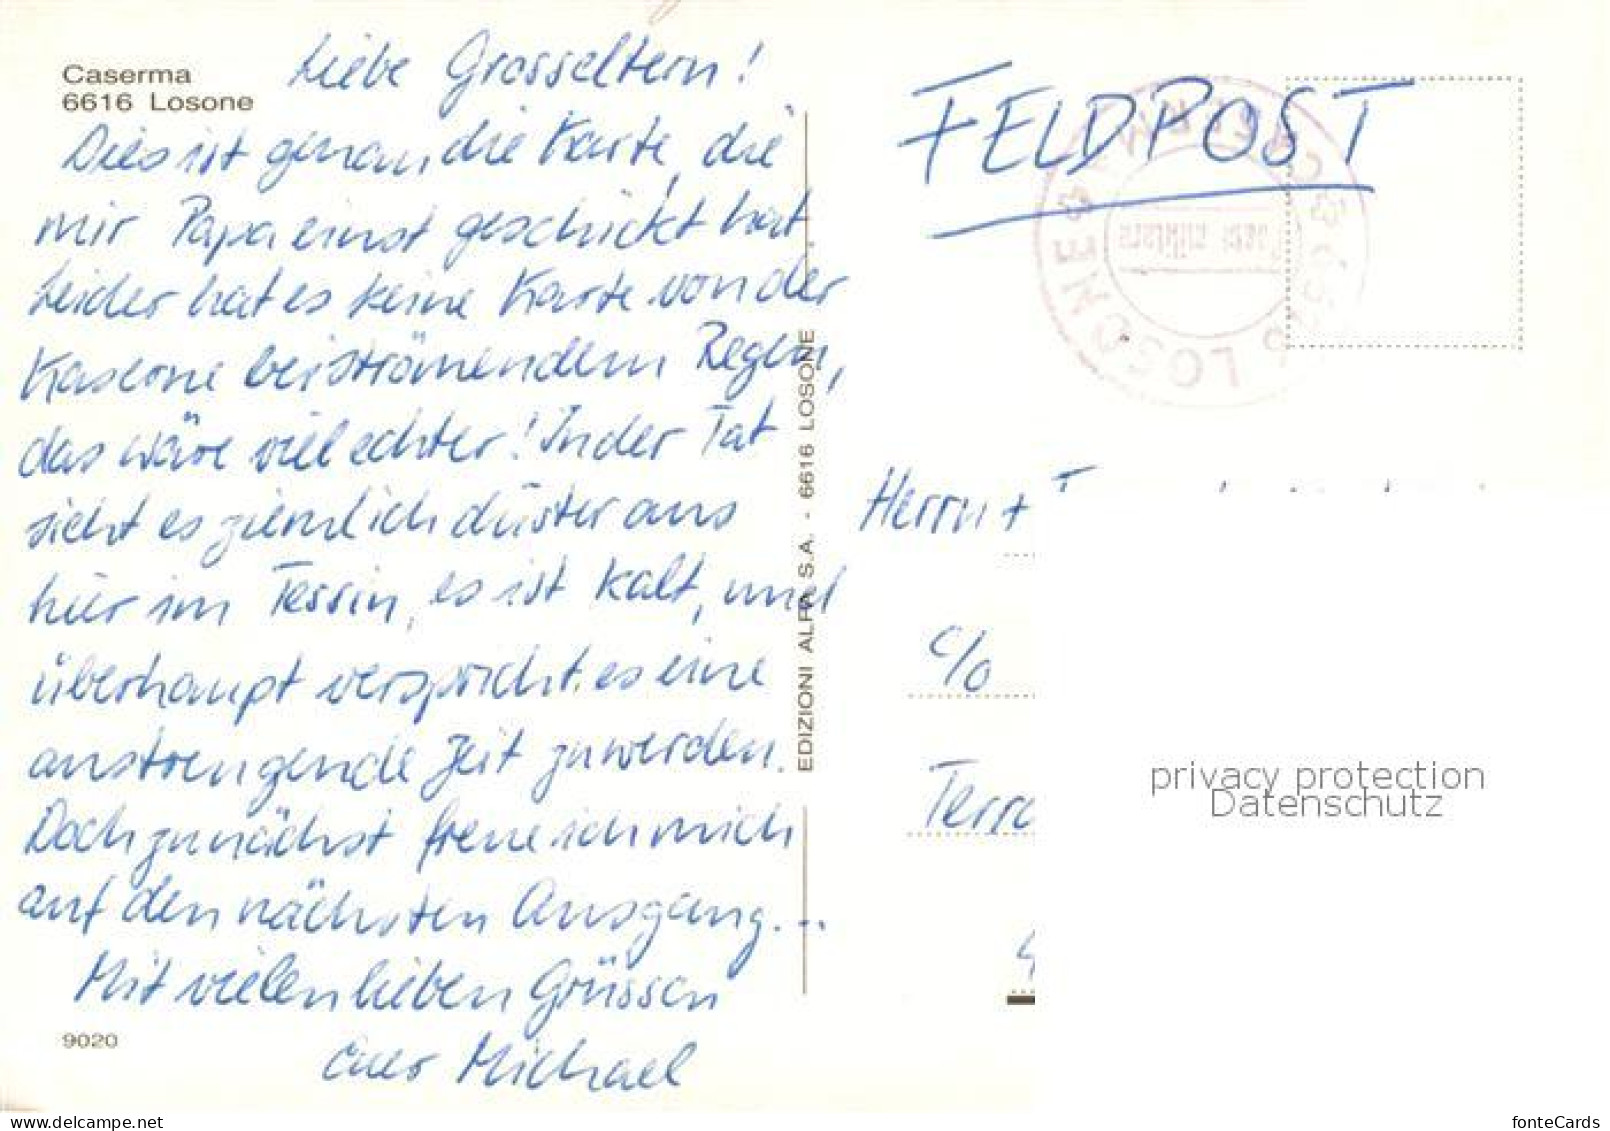 Caserma
6616 Losone
Liebe Grosseltern!
Dies ist genau die Karte, die
mir Papa einst geschickt hat.
Leider hat es keine Karte von der
Kaserne bei strömendem Regen,
das wäre viel echter! In der Tat
sieht es ziemlich düster aus
hier im Tessin, es ist kalt, und
überhaupt verspricht es eine
anstrengende Zeit zu werden.
Doch zunächst freue ich mich
auf den nächsten Ausgang...
Mit vielen lieben Grüssen
Euer Michael
9020
EDIZIONI ALFA S.A. - 6616 LOSONE
FELDPOST
LOSONE
Herrn +
c/o
Terra
privacy protection
Datenschutz
my-next-collection.com
fonteCards